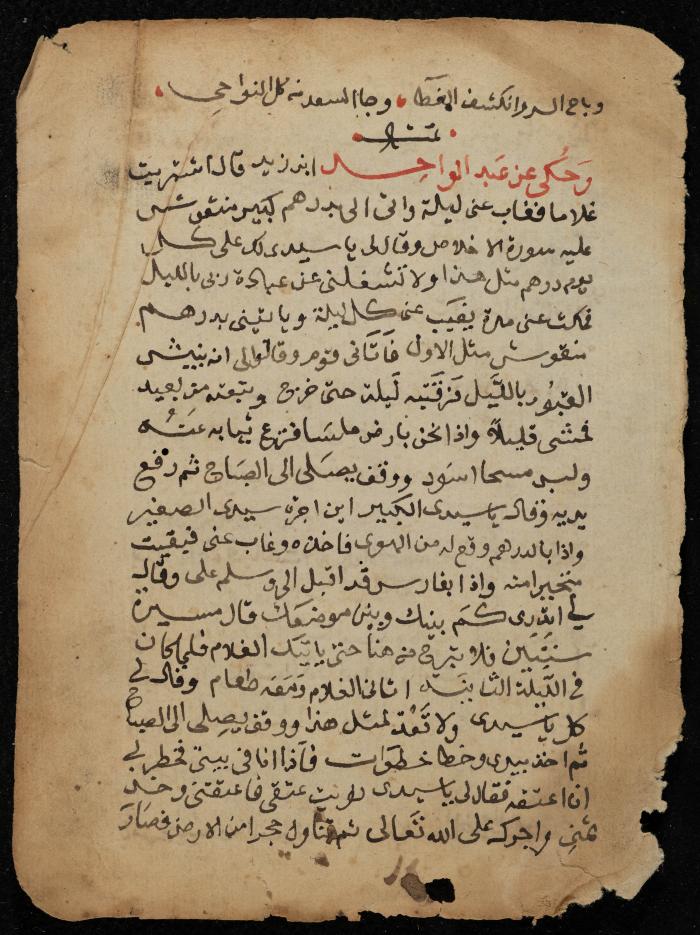 وباح السر وانكشف الغطا وجا السعد من كل النواحي
تمت
وَحُكى عن عَبد الواحِد ابن زيد قال اشتريت
غلاما فغاب عنى ليلة واتى الى بدرهم كبير منقوش
عليه سورة الاخلاص وقال لى يا سيدى لك على كل
يوم درهم مثل هذا ولا تشغلنى عن عبادة ربى بالليل
فمكث عنى مدة يغيب عنى كل ليلة وياتينى بدرهم
منقوش مثل الاول فَاتَانى قوم وقالوا لى انه ينبش
القبُور بالليَل فرقبته لَيلة حتى خرج وتبعته من بعيد
فمشى قليلاً واذا نحن بارض ملسا فنزع ثيابه عنه
ولبس مسحا اسود ووقف يصلى الى الصباح ثم رفع
يديه وقال يا سيدى الكبير اين اجرة سيدى الصغير
واذا بالدرهم وقع له من الهوى فاخذه وغاب عنى فبقيت
متحيرا منه واذا بفارس قد اقبل الى وسلم على وقال
لى اتدرى كم بينك وبين موضعك قال مسيرة
سنتين فلا تبرح من هنا حتى ياتيك الغلام فلما كان
فى الليلة الثانية اتانى الغلام ومَعَه طعام وقال لى
كل يا سيدى ولا تَعُد لمثل هذا ووقف يصلى الى الصباح
ثم اخذ بيدى وخطا خطَوات فَاذا انا فى بيتى فخطر لى
ان اعتقه فقال لى يا سيدى نويت عتقى فاعتقنى وخذ
ثمنى واجرك على الله تَعالى ثم تناول حجرا من الارض فصَارَ